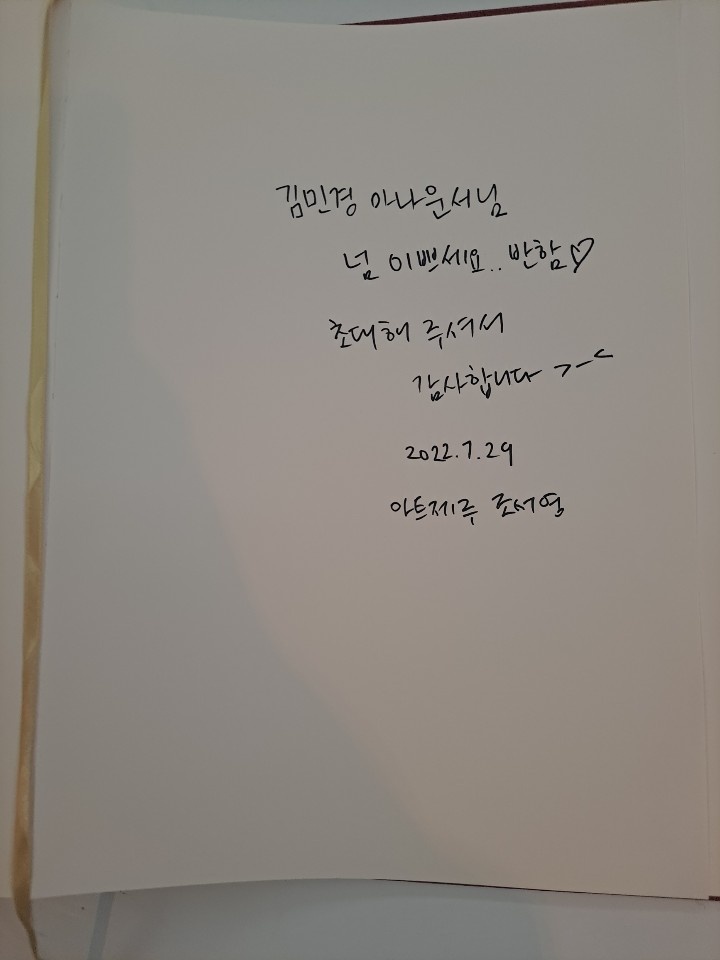 김민경 아나운서님
넘 이쁘세요.. 반함♡
초대해 주셔서
감사합니다 >-<
2022.7.29
아트제주 조서영